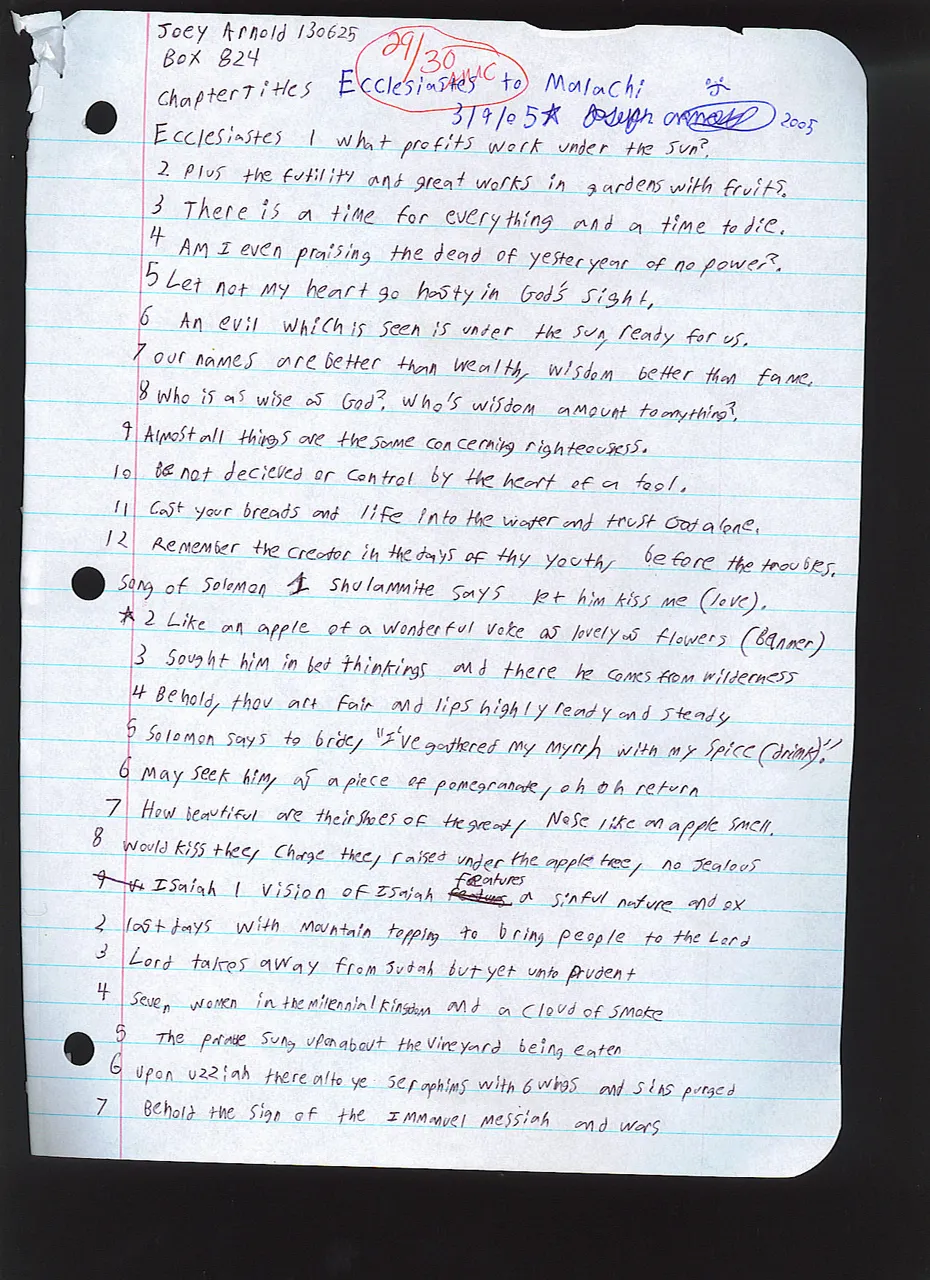 Joey Arnold 130625
Box 824
29/30
AMC
Chapter Titles Ecclesiastes to Malachi
3/9/05 Joseph Arnold 2005
Ecclesiastes 1 what profits work under the sun?
2 Plus the futility and great works in gardens with fruits.
3 There is a time for everything and a time to die.
4 Am I even praising the dead of yesteryear of no power?
5 Let not my heart go hasty in God's sight.
6 An evil which is seen is under the sun, ready for us.
7 our names are better than wealth, wisdom better than fame.
8 Who is as wise as God? Who's wisdom amount to anything?
9 Almost all things are the same concerning righteousess.
10 Be not decieved or control by the heart of a fool.
11 Cast your breads and life into the water and trust God alone.
12 Remember the creator in the days of thy youth, before the troubles.
Song of Solomon 1 Shulammite says let him kiss me (love).
* 2 Like an apple of a wonderful voice as lovely as flowers (Banner)
3 Sought him in bed thinkings and there he comes from wilderness
4 Behold, thou art fair and lips highly ready and steady
5 Solomon says to bride, "I've gathered my myrrh with my spice (drink)".
6 may seek him, as a piece of pomegranate, oh oh return
7 How beautiful are their shoes of the great, Nose like an apple smell.
8 would kiss thee, Charge thee, raised under the apple tree, no jealous
Isaiah 1 vision of Isaiah features a sinful nature and ox
2 last days with mountain topping to bring people to the Lord
3 Lord takes away from Judah but yet unto prudent
4 Seven women in the milennial kingdom and a cloud of smoke
5 The parable sung upon about the vineyard being eaten
6 Upon uzziah there alto ye seraphims with 6 wings and sins purged
7 Behold the sign of the Immanuel messiah and wars